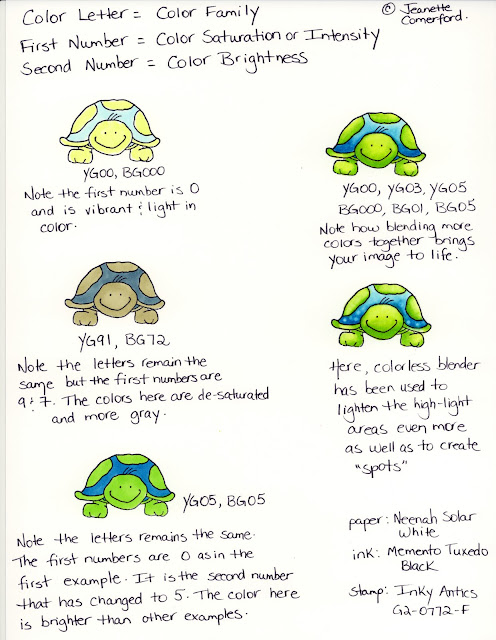 Color Letter = Color Family
© Jeanette
Comerford.
First Number = Color Saturation or Intensity
Second Number = Color Brightness
YG00, BG000
Note the first number is 0
and is vibrant & light in
color.
YG00, YG03, YG05
BG000, BG01, BG05
Note how blending more
colors together brings
your image to life.
YG91, BG72
Note the letters remain the
same but the first numbers are
9 & 7. The colors here are de-saturated
and more gray.
Here, colorless blender
has been used to
lighten the high-light
areas even more
as well as to create
"spots"
YG05, BG05
Note the letters remains the same.
The first numbers are 0 as in the
first example. It is the second number
that has changed to 5. The color here
is brighter than other examples.
paper: Neenah Solar
White
ink: Memento Tuxedo
Black
stamp: Inky Antics
G2-0772-F